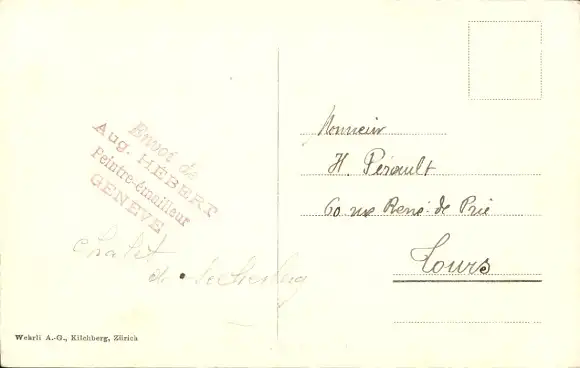 Envoi de
Aug. HÉBERT
Peintre-émailleur
GENÈVE
Chalet
de
Wehrli A.-G., Kilchberg, Zürich
Monsieur
H. Pérault
60 rue René de Prie
Tours